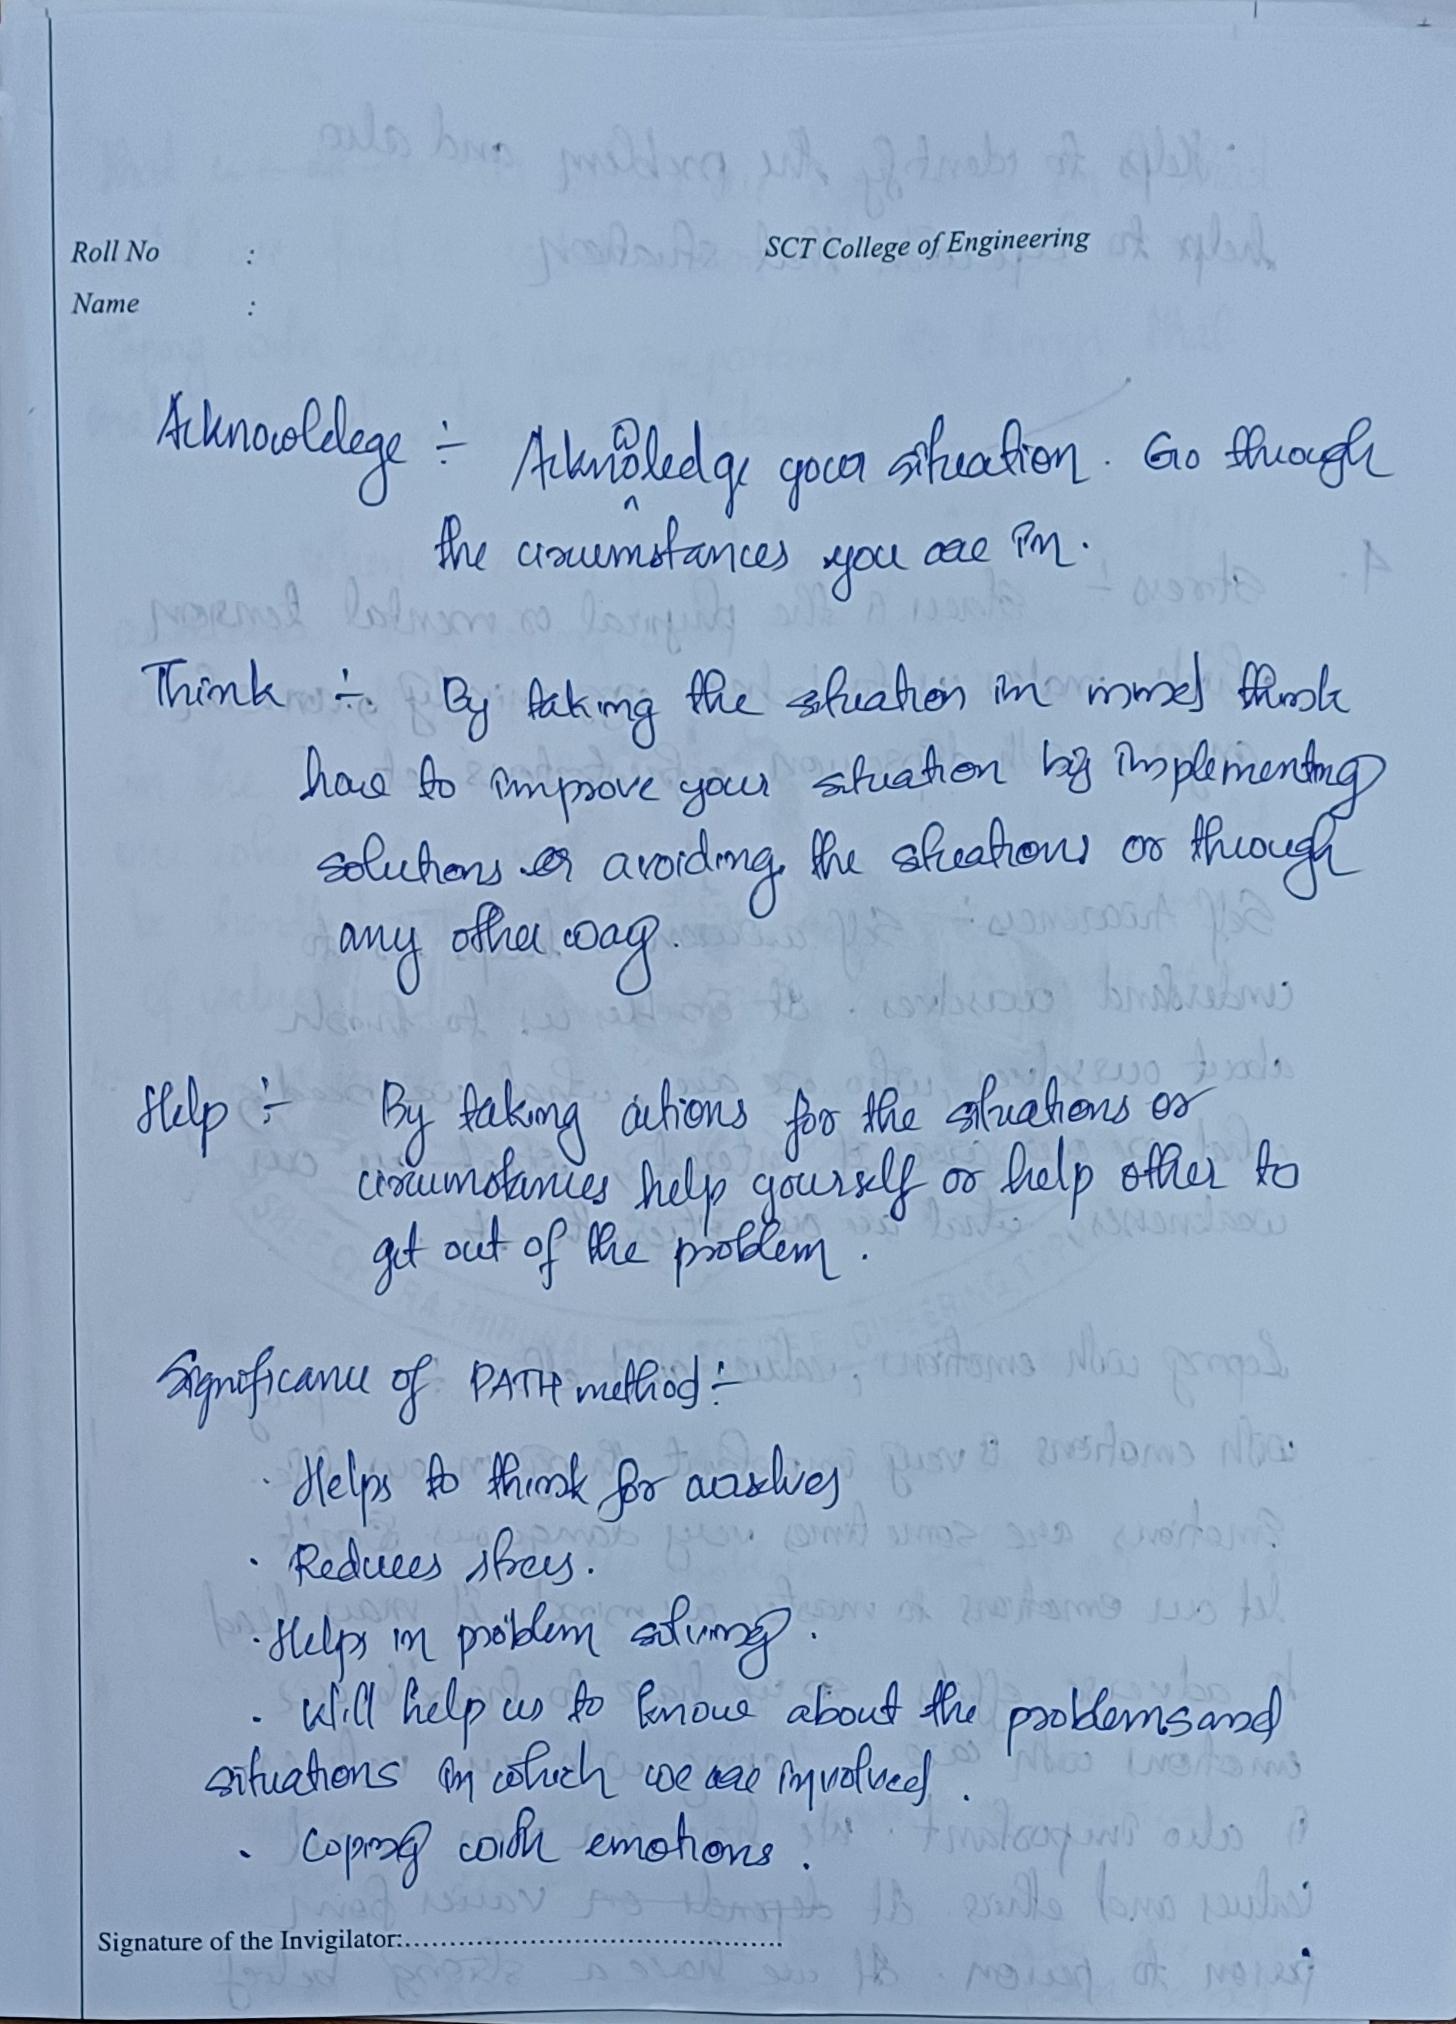 Roll No :
SCT College of Engineering
Name :
Acknowoldege :- Acknowledge your situation. Go through
the circumstances you are in.
Think :- By taking the situation in mind think
how to improve your situation by implementing
solutions or avoiding the situations or through
any other way.
Help :- By taking actions for the situations or
circumstances help yourself or help other to
get out of the problem.
Significance of PATH method :-
· Helps to think for ourselves
· Reduces stress.
· Helps in problem solving.
· Will help us to know about the problems and
situations in which we are involved.
· Coping with emotions.
Signature of the Invigilator:..........................................